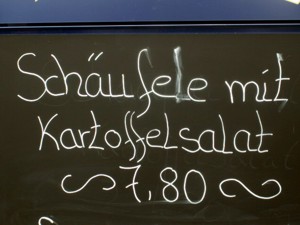 Schäufele mit
Kartoffelsalat
~ 7,80 ~